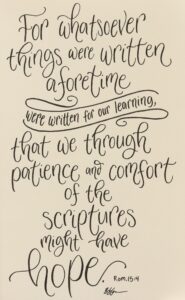 For whatsoever
things were written
aforetime
were written for our learning,
that we through
patience and comfort
of the
scriptures
might have
hope.
Rom. 15:4